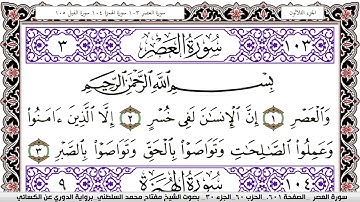 الجزء الثلاثون سورة العصر ١٠٣ سورة الهمزة ١٠٤ سورة الفيل ١٠٥
١٠٣ سُورَةُ الْعَصْرِ ٣
بِسْمِ اللَّهِ الرَّحْمَٰنِ الرَّحِيمِ
وَالْعَصْرِ ١ إِنَّ الْإِنسَانَ لَفِي خُسْرٍ ٢ إِلَّا الَّذِينَ ءَامَنُوا
وَعَمِلُوا الصَّالِحَاتِ وَتَوَاصَوْا بِالْحَقِّ وَتَوَاصَوْا بِالصَّبْرِ ٣
١٠٤ سُورَةُ الْهُمَزَةِ ٩
سورة العصر _ الصفحة ٦٠١_ الحزب ٦٠_ الجزء ٣٠_ بصوت الشيخ مفتاح محمد السلطني_ برواية الدوري عن الكسائي